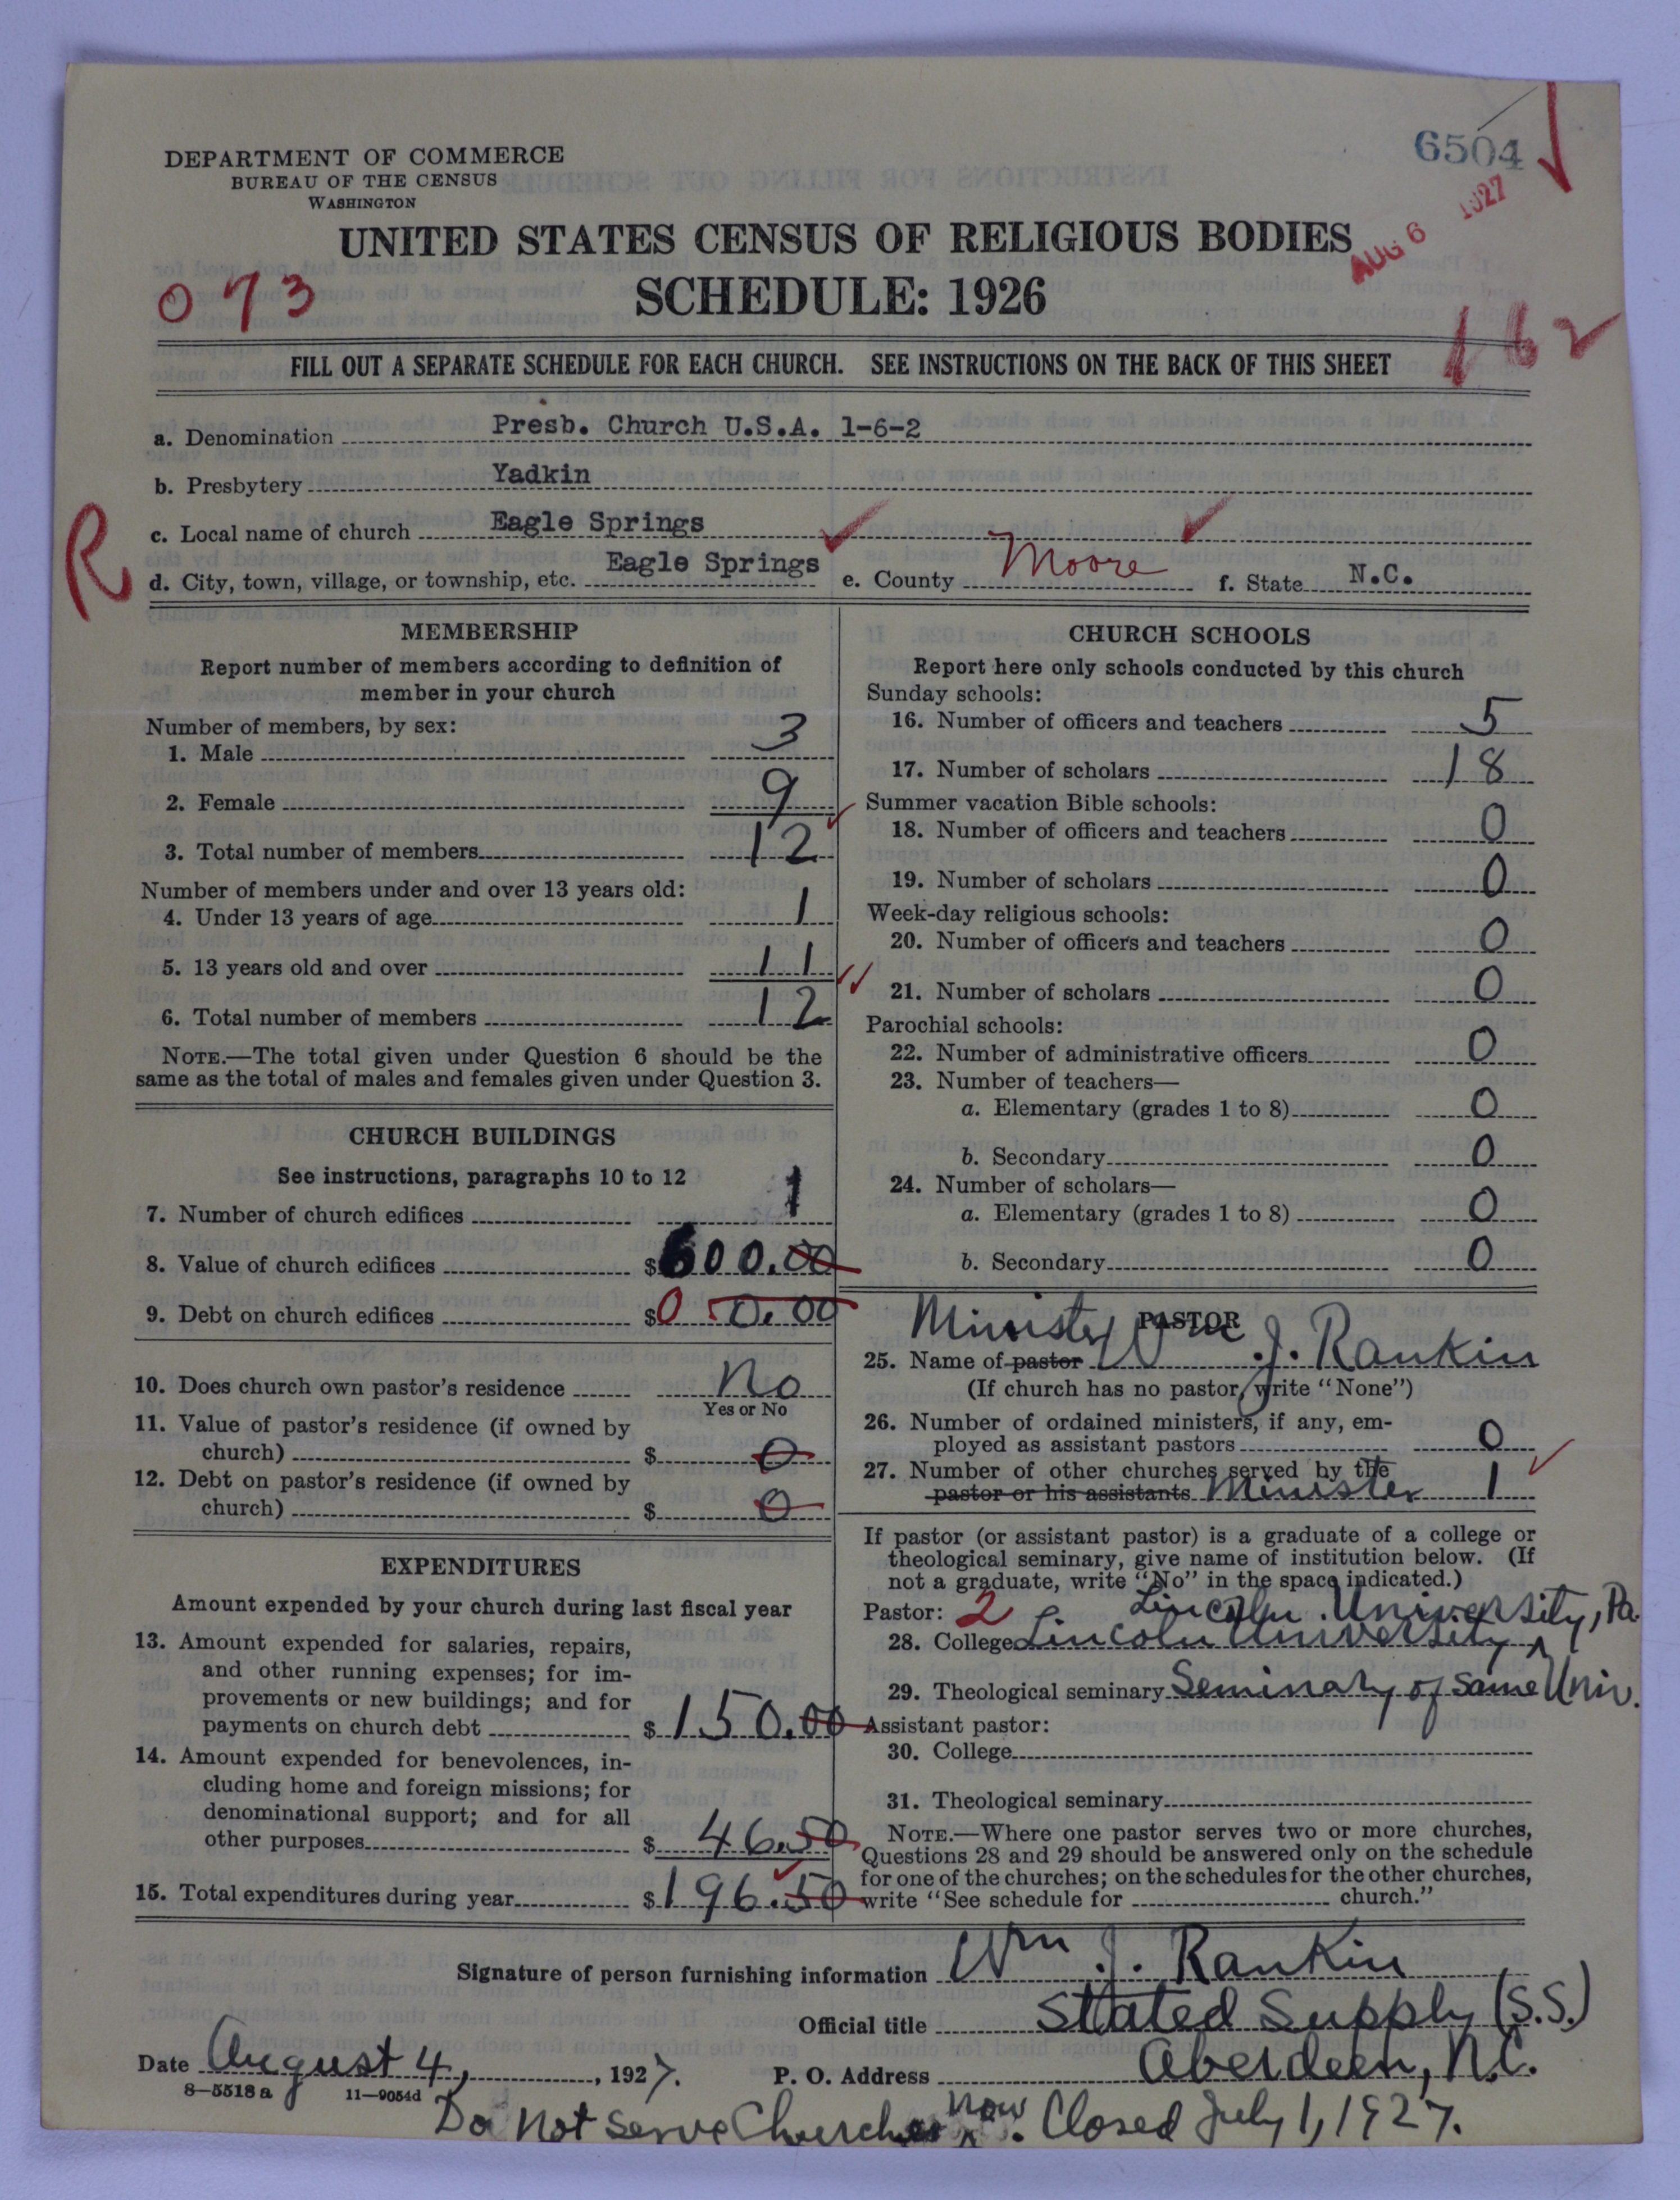 6504
DEPARTMENT OF COMMERCE
BUREAU OF THE CENSUS
WASHINGTON
AUG 6 1927
UNITED STATES CENSUS OF RELIGIOUS BODIES
073
SCHEDULE: 1926
162
FILL OUT A SEPARATE SCHEDULE FOR EACH CHURCH. SEE INSTRUCTIONS ON THE BACK OF THIS SHEET
a. Denomination Presb. Church U.S.A. 1-6-2
b. Presbytery Yadkin
R
c. Local name of church Eagle Springs
d. City, town, village, or township, etc. Eagle Springs e. County Moore f. State N.C.
MEMBERSHIP
Report number of members according to definition of
member in your church
Number of members, by sex:
1. Male 3
2. Female 9
3. Total number of members 12
Number of members under and over 13 years old:
4. Under 13 years of age 1
5. 13 years old and over 11
6. Total number of members 12
NOTE.—The total given under Question 6 should be the
same as the total of males and females given under Question 3.
CHURCH BUILDINGS
See instructions, paragraphs 10 to 12
7. Number of church edifices 1
8. Value of church edifices $600.00
9. Debt on church edifices $0 0.00
10. Does church own pastor's residence No
Yes or No
11. Value of pastor's residence (if owned by
church) $ 0
12. Debt on pastor's residence (if owned by
church) $ 0
EXPENDITURES
Amount expended by your church during last fiscal year
13. Amount expended for salaries, repairs,
and other running expenses; for im-
provements or new buildings; and for
payments on church debt $150.00
14. Amount expended for benevolences, in-
cluding home and foreign missions; for
denominational support; and for all
other purposes $ 46.50
15. Total expenditures during year $196.50
CHURCH SCHOOLS
Report here only schools conducted by this church
Sunday schools:
16. Number of officers and teachers 5
17. Number of scholars 18
Summer vacation Bible schools:
18. Number of officers and teachers 0
19. Number of scholars 0
Week-day religious schools:
20. Number of officers and teachers 0
21. Number of scholars 0
Parochial schools:
22. Number of administrative officers 0
23. Number of teachers—
a. Elementary (grades 1 to 8) 0
b. Secondary 0
24. Number of scholars—
a. Elementary (grades 1 to 8) 0
b. Secondary 0
PASTOR
Minister
25. Name of pastor Wm J. Rankin
(If church has no pastor, write "None")
26. Number of ordained ministers, if any, em-
ployed as assistant pastors 0
27. Number of other churches served by the
pastor or his assistants Minister 1
If pastor (or assistant pastor) is a graduate of a college or
theological seminary, give name of institution below. (If
not a graduate, write "No" in the space indicated.)
Pastor: 2 Lincoln University, Pa.
28. College Lincoln University
29. Theological seminary Seminary of same Univ.
Assistant pastor:
30. College
31. Theological seminary
NOTE.—Where one pastor serves two or more churches,
Questions 28 and 29 should be answered only on the schedule
for one of the churches; on the schedules for the other churches,
write "See schedule for church."
Signature of person furnishing information Wm J. Rankin
Official title Stated Supply (S.S.)
Date August 4, 1927. P. O. Address Aberdeen, N.C.
8-5518a 11-9054d
Do not serve Churches now. Closed July 1, 1927.